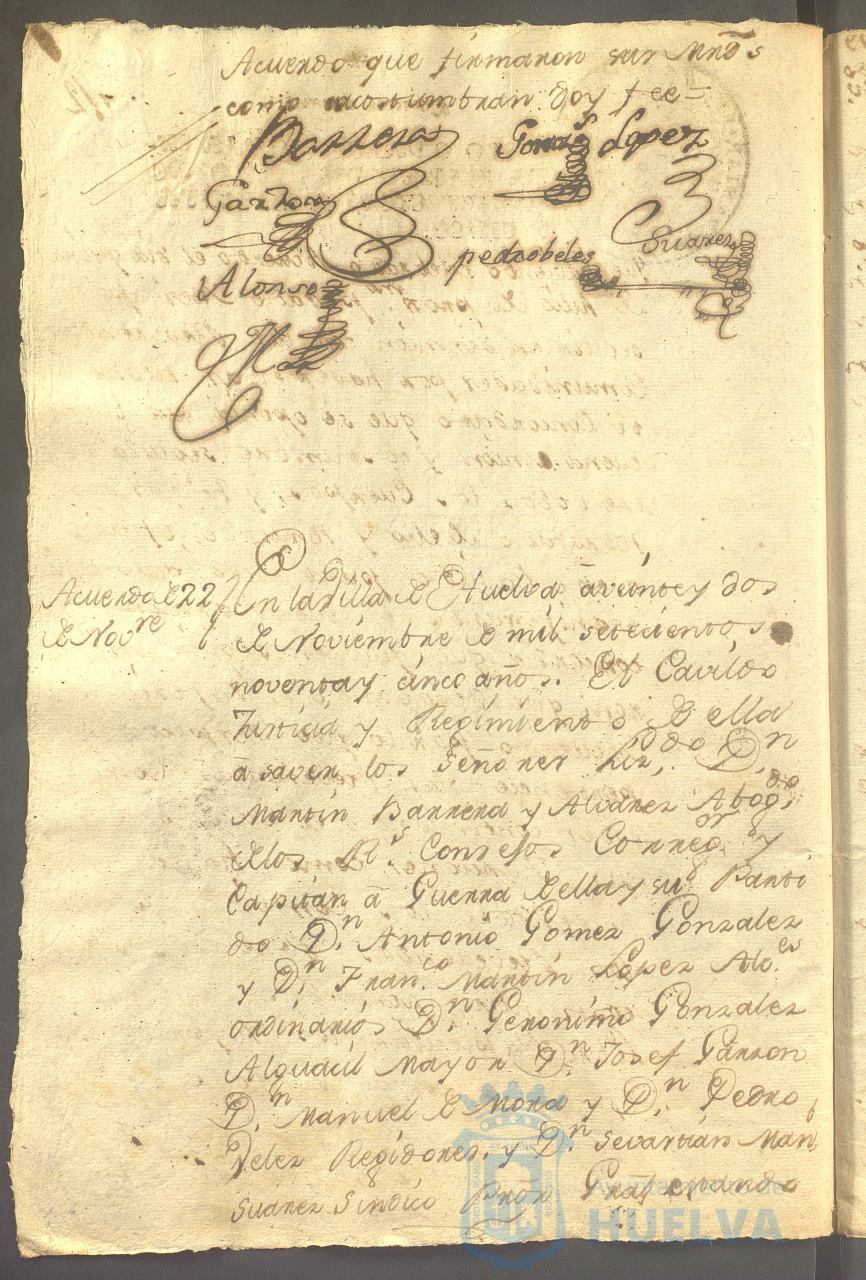 Acuerdo que firmaron sus Mrds
como acostumbran doy fee=
Barrera Gomez Lopez
Garzon
Suarez
pedro belez
Alonso
Acuerdo de 22
de Novre
En la Villa de Huelva à veinte y dos
de Noviembre de mil setecientos
noventa y cinco años. El Cavildo
Justicia y Regimiento de ella
à saver los Señores Liz.do Dn
Martin Barrera y Alvarez Abogdo
de los Rs Consejos Corregor y
Capitan à Guerra de ella y su Parti
do Dn Antonio Gomez Gonzalez
y Dn Franco Martin Lopez Alces
ordinarios Dn Geronimo Gonzalez
Alguacil mayor Dn Josef Garzon
Dn Manuel de Mora y Dn Pedro
Velez Regidores, y Dn Sevastian Man
Suarez Sindico Pror Gral estando
Ayuntamiento de
HUELVA